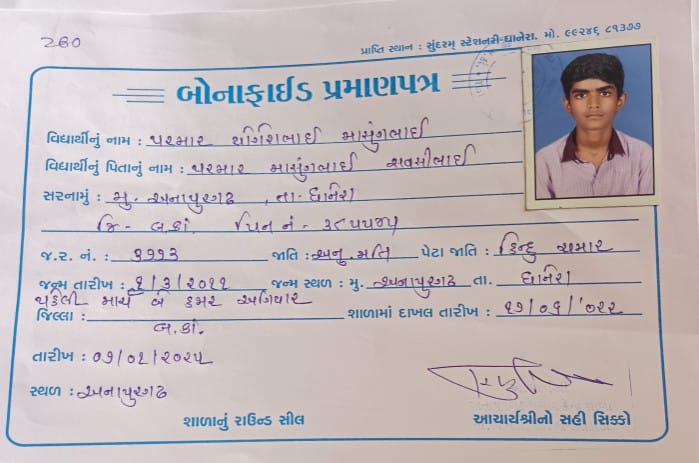 260
પ્રાપ્તિ સ્થાન : સુંદરમ્ સ્ટેશનરી-ધાનેરા. મો. ૯૯૨૪૬ ૮૧૩૭૭
બોનાફાઈડ પ્રમાણપત્ર
વિદ્યાર્થીનું નામ : પરમાર માસુંગભાઈ
વિદ્યાર્થીનું પિતાનું નામ : પરમાર માસુંગભાઈ
સરનામું : મુ. અનાપુરગઢ , તા- ધાનેરા
જિ- બ.કાં. પિન નં - ૩૮૫૫૪૫
જ.ર. નં. : ૩૧૧૩ જાતિ : અનુ. જાતિ પેટા જાતિ : હિન્દુ ચમાર
જન્મ તારીખ : ૧/૩/૨૦૧૧ જન્મ સ્થળ : મુ. અનાપુરગઢ તા. ધાનેરા
પહેલી માર્ચ બે હજાર અગિયાર
જિલ્લા : બ.કાં. શાળામાં દાખલ તારીખ :
તારીખ : ૦૧/૦૨/૨૦૨૫
સ્થળ : અનાપુરગઢ
શાળાનું રાઉન્ડ સીલ આચાર્યશ્રીનો સહી સિક્કો